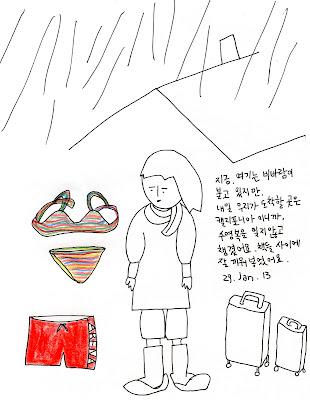 지금, 여기는 비바람이
불고 있지만,
내일 우리가 도착할 곳은
캘리포니아 이니까,
수영복을 잊지않고
챙겼어요. 책들 사이에
잘 끼워 넣었어요.
29. Jan. 13
ARENA